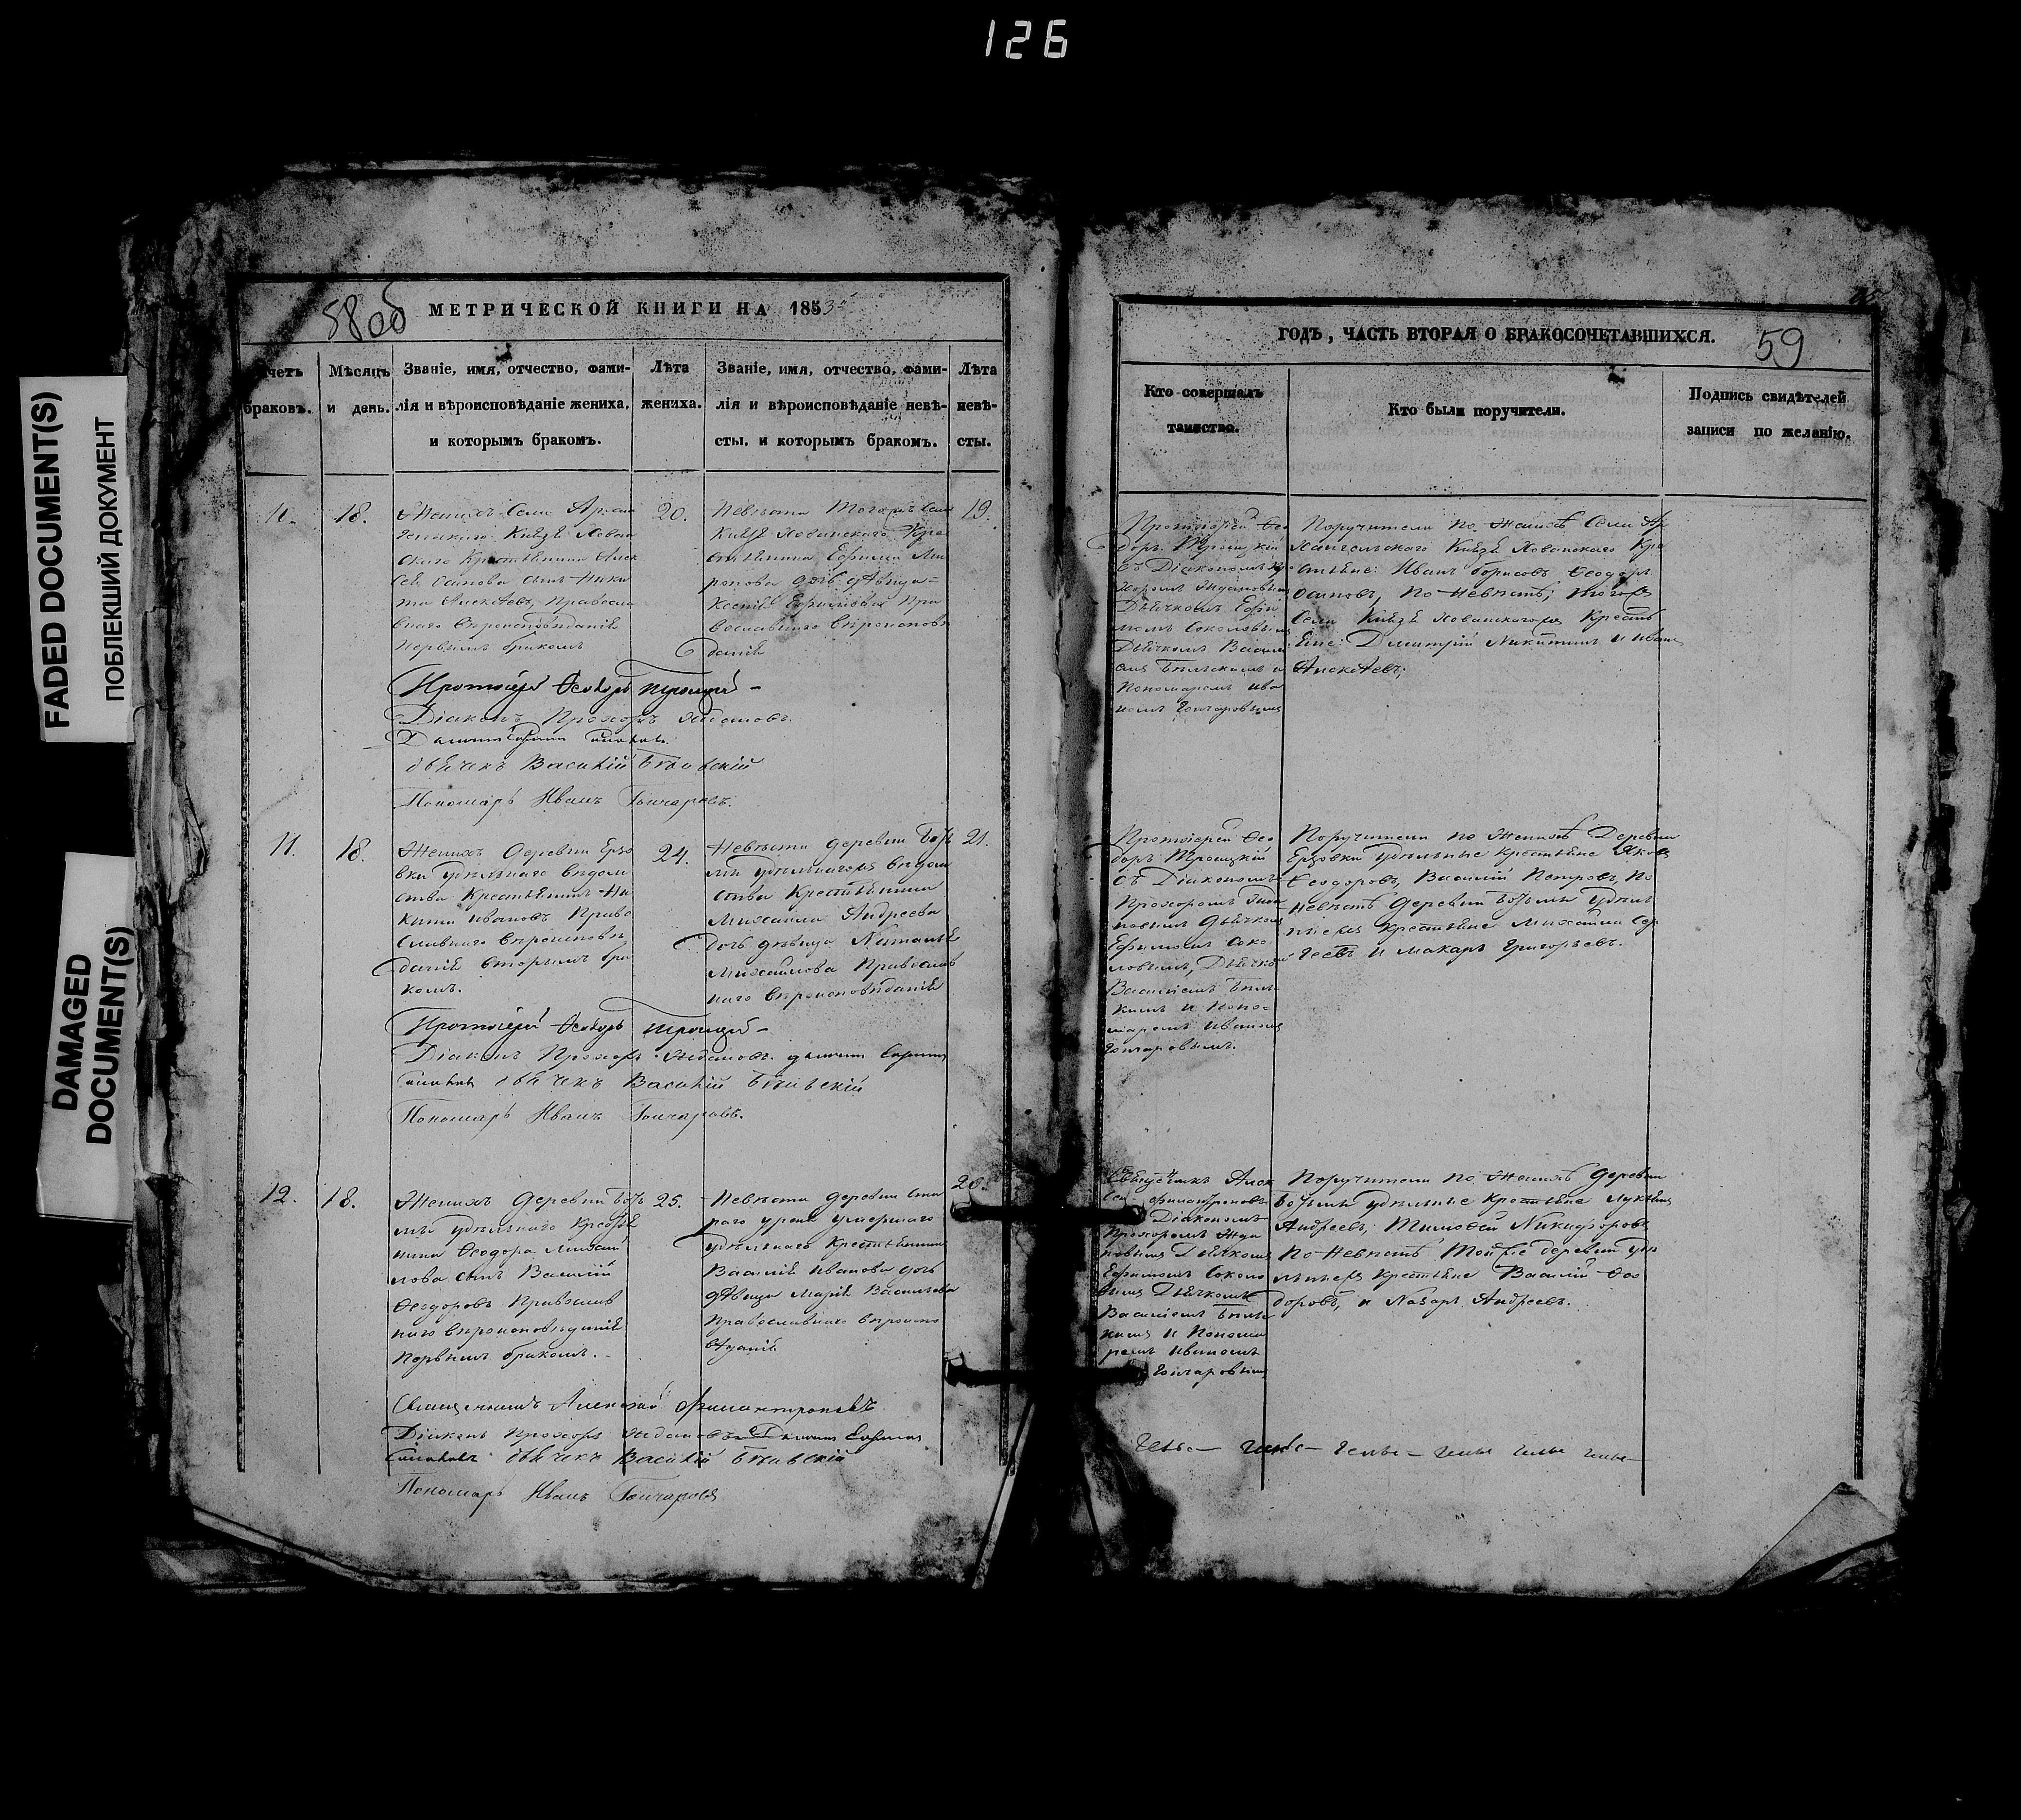 126
FADED DOCUMENT(S)
ПОБЛЕКШИЙ ДОКУМЕНТ
DAMAGED
DOCUMENT(S)
58об
МЕТРИЧЕСКОЙ КНИГИ НА 1853
четъ
браковъ.
Мѣсяцъ
и день.
Званіе, имя, отчество, фами-
лія и вѣроисповѣданіе жениха,
и которымъ бракомъ.
Лѣта
жениха.
Званіе, имя, отчество, фами-
лія и вѣроисповѣданіе невѣ-
сты, и которымъ бракомъ.
Лѣта
невѣ-
сты.
18.
Женихъ Села
Князя Хован
скаго
Осипова сынъ Ники
та Алексѣевъ, Правосла
внаго Вѣроисповѣданія
Первымъ бракомъ
20.
Невѣста Тогожъ Села
Князя Хованскаго Кре
стьянина Ефима Ми
ронова дочь дѣвица
Ксенія Ефимова Пра
вославнаго Вѣроисповѣ
данія
19.
Протоіерей Ѳеодоръ Троицкій
Діаконъ Прохоръ Ждановъ.
дьячекъ Василій
Пономарь Иванъ Гончаровъ.
11.
18.
Женихъ деревни Ерзо
вки удѣльнаго вѣдом
ства Крестьянинъ Ни
кита Ивановъ Право
славнаго Вѣроисповѣ
данія вторымъ бра
комъ.
24.
Невѣста деревни
удѣльнагожъ вѣдом
ства Крестьянина
Михаила Андреева
дочь дѣвица Наталья
Михайлова Православ
наго Вѣроисповѣданія
21.
Протоіерей Ѳеодоръ Троицкій
Діаконъ Прохоръ Ждановъ.
дьячекъ Василій
Пономарь Иванъ Гончаровъ.
12.
18.
Женихъ деревни
удѣльнаго Крестья
нина Ѳеодора Михай
лова сынъ Василій
Ѳеодоровъ Православ
наго Вѣроисповѣданія
Первымъ бракомъ.
25.
Невѣста деревни Ста
раго умершаго
удѣльнаго Крестьянина
Василія Иванова дочь
дѣвица Марія Васильева
Православнаго Вѣроиспо
вѣданія
20.
Священникъ Алексѣй Филантроповъ
Діаконъ Прохоръ Ждановъ
дьячекъ Василій
Пономарь Иванъ Гончаровъ
ГОДЪ, ЧАСТЬ ВТОРАЯ О БРАКОСОЧЕТАВШИХСЯ.
59
Кто совершалъ
таинство.
Кто были поручители.
Подпись свидѣтелей
записи по желанію.
Протоіерей Ѳео
доръ Троицкій
съ Діакономъ Про
хоромъ Ждановымъ
Дьячкомъ Ефи
момъ Соколовымъ
Дьячкомъ Васил
Пономаремъ Ива
номъ Гончаровымъ
Поручители по Женихѣ Села Ар
хангельскаго Князя Хованскаго Кре
стьяне: Иванъ Борисовъ Ѳеодоръ
Осиповъ, по Невѣстѣ; тогожъ
Села Князя Хованскагожъ Кресть
яне: Димитрій Никитинъ и Иванъ
Алексѣевъ;
Протоіерей Ѳео
доръ Троицкій
съ Діакономъ
Прохоромъ Жда
новымъ Дьячкомъ
Ефимомъ Соко
ловымъ, Дьячко
Василіемъ
и Поно-
маремъ Иваномъ
Гончаровымъ.
Поручители по Женихѣ Деревни
Ерзовки удѣльные крестьяне Яковъ
Ѳеодоровъ, Василій Петровъ, По
Невѣстѣ деревни удѣль
ныежъ крестьяне Михаилъ Сер
геевъ и Макаръ Григорьевъ.
Священникъ Алек
Филантроповъ
Діакономъ
Прохоромъ Жда
новымъ Дьячкомъ
Ефимомъ Соколо
вымъ Дьячкомъ
Василіемъ
и Понома
ремъ Иваномъ
Гончаровымъ
Поручители по Женихѣ деревни
удѣльные крестьяне Лукьянъ
Андреевъ, Тимоѳей Никифоровъ
По Невѣстѣ Той же деревни удѣ
льныежъ крестьяне Василій Ѳео
доровъ, и Назаръ Андреевъ.